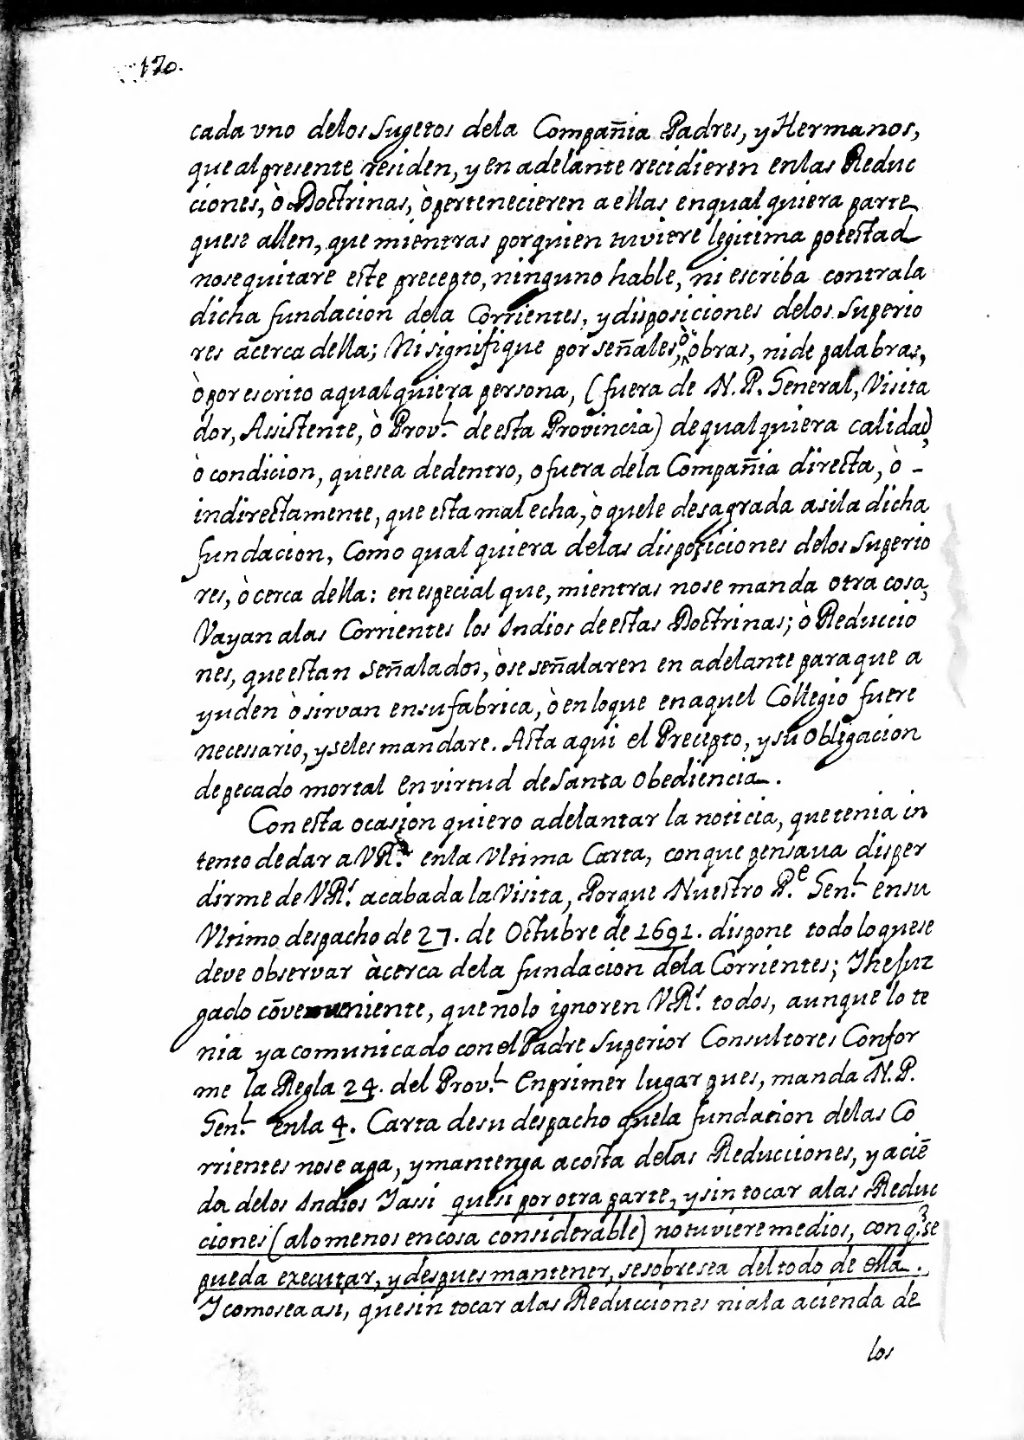 120.
cada vno delos Sugetos dela Compañia Padres, y Hermanos,
que al presente residen, y en adelante recidieren en las Reduc
ciones, ò Doctrinas, ò pertenecieren a ellas en qual quiera parte
que se allen, que mientras por quien tuviere legitima potestad
no se quitare este precepto, ninguno hable, ni escriba contra la
dicha fundacion dela Corrientes, y disposiciones delos Superio
res acerca della; Ni signifique por señales, ò obras, ni de palabras,
ò por escrito a qual quiera persona, (fuera de N. P. General, Visita
dor, Assistente, ò Prov.l de esta Provincia) de qual quiera calidad,
ò condicion, que sea de dentro, o fuera dela Compañia directa, ò -
indirectamente, que esta mal echa, ò que le desagrada asi la dicha
fundacion, Como qual quiera delas disposiciones delos Superio
res, ò cerca della: en especial que, mientras no se manda otra cosa,
Vayan a las Corrientes los Indios de estas Doctrinas; ò Reduccio
nes, que estan señalados, ò se señalaren en adelante para que a
yuden ò sirvan en su fabrica, ò en lo que en aquel Collegio fuere
necessario, y se les mandare. Asta aqui el Precepto, y su obligacion
de pecado mortal en virtud de Santa obediencia.
Con esta ocasion quiero adelantar la noticia, que tenia in
tento de dar a VR.s en la Vltima Carta, con que pensaua disper
dirme de VR.s acabada la Visita, Porque Nuestro P.e Gen.l en su
Vltimo despacho de 27. de Octubre de 1691. dispone todo lo que se
deve observar àcerca dela fundacion dela Corrientes; I he juz
gado cōveniente, que no lo ignoren VR.s todos, aunque lo te
nia ya comunicado con el Padre Superior Consultores Confor
me la Regla 24. del Prov.l En primer lugar pues, manda N. P.
Gen.l en la 4. Carta de su despacho que la fundacion delas Co
rrientes no se aga, y mantenga a costa delas Reducciones, y aciē
da delos Indios I assi que si por otra parte, y sin tocar a las Reduc
ciones (alomenos en cosa considerable) no tuviere medios, con q.e se
pueda executar, y despues mantener, se sobresea del todo de ella.
I como sea asi, que sin tocar a las Reducciones ni a la acienda de
los